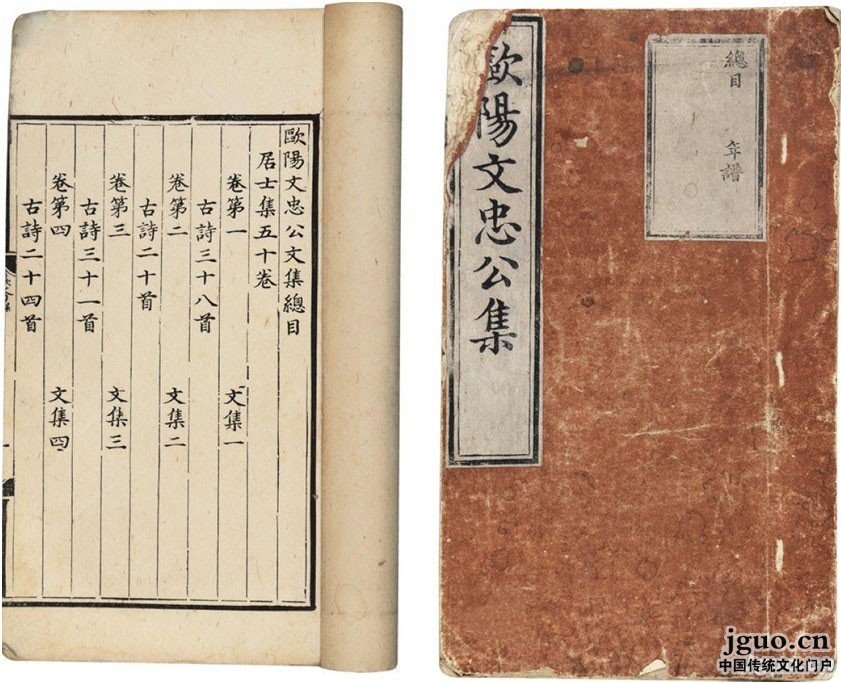 歐陽文忠公文集總目
居士集五十卷
卷第一 文集一
古詩三十八首
卷第二 文集二
古詩二十首
卷第三 文集三
古詩三十一首
卷第四 文集四
古詩二十四首
歐陽文忠公集
總目 年譜
jguo.cn
中国传统文化门户